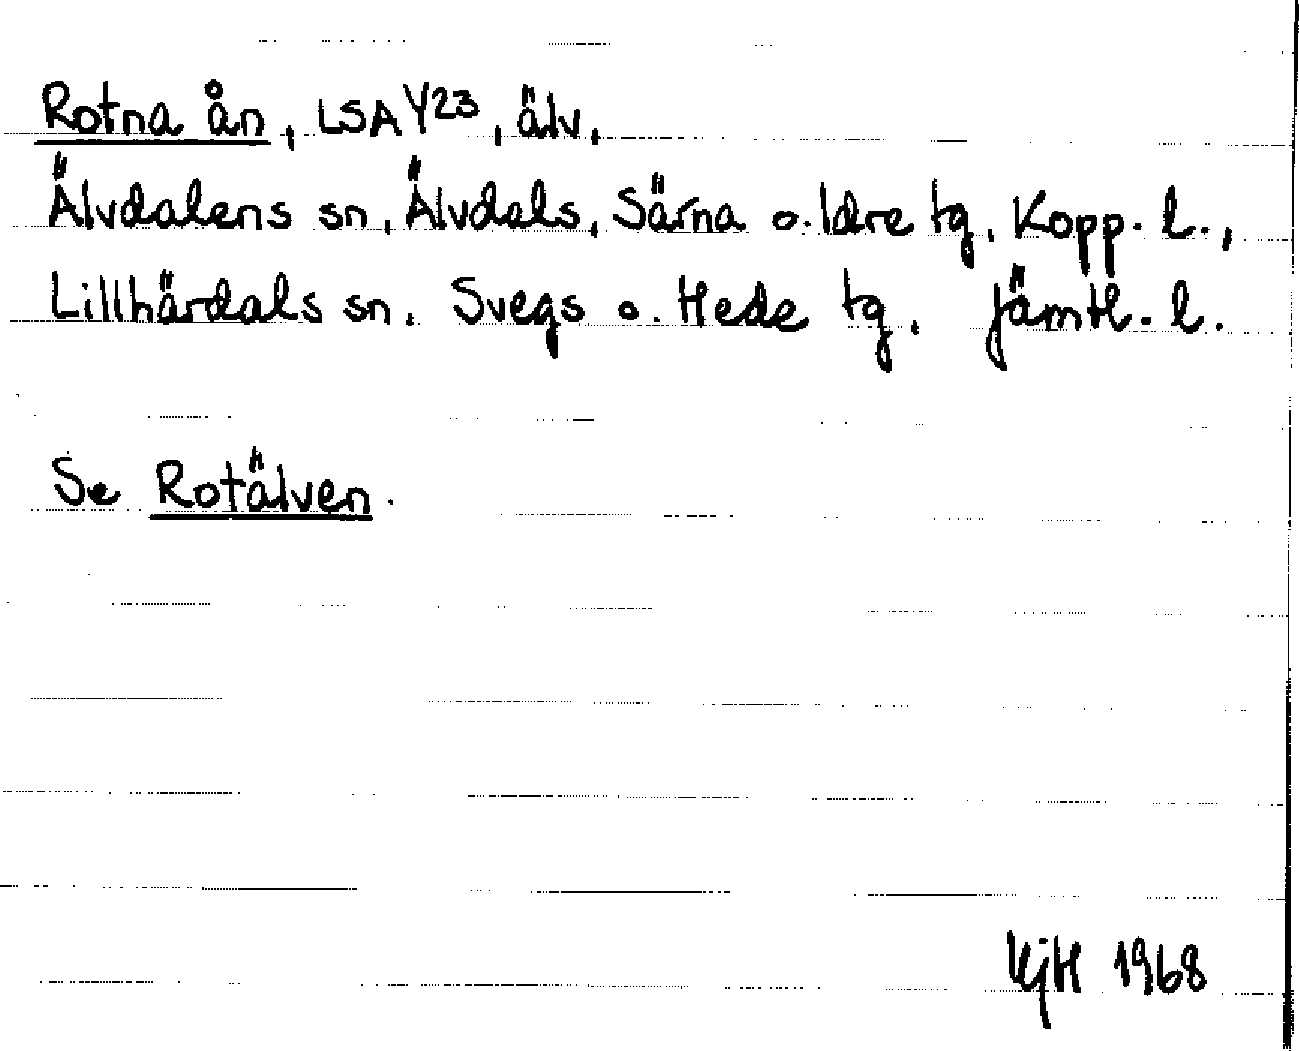 Rotna ån, LSA Y23, älv,
Älvdalens sn, Älvdals, Särna o. Idre tg, Kopp. l.,
Lillhärdals sn, Svegs o. Hede tg, Jämtl. l.
Se Rotälven.
KjH 1968